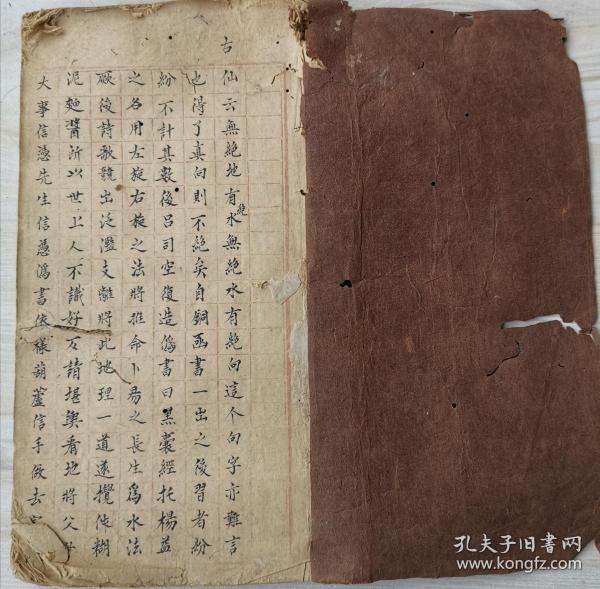 古
仙云無絶地有絶水無絶水有絶向這个向字亦難言
也得了真向則不絶矣自銅函書一出之後習者紛
紛不計其數後吕司空復造偽書曰黑囊經托楊益
之名用左旋右旋之法將推命卜易之長生爲水法
厥後詩歌競出泛濫支離將此地理一道遂攪做糊
泥麵醬所以世上人不識好歹請堪輿看地將父母
大事信憑先生信憑僞書依樣葫蘆信手做去
孔夫子旧書网
www.kongfz.com